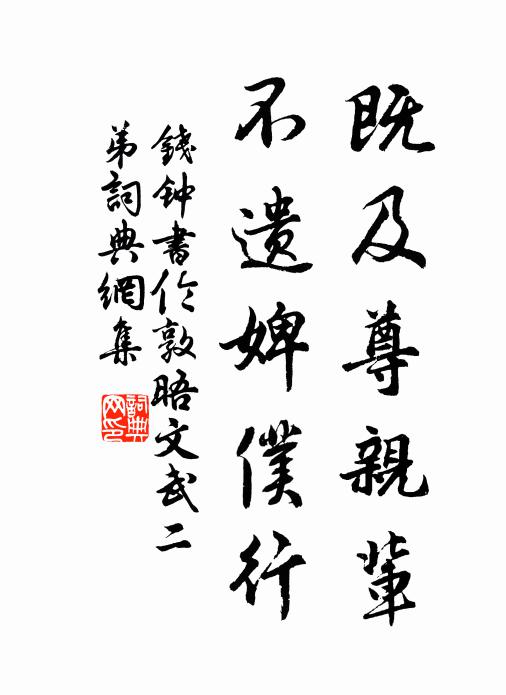 既及尊親輩
不遺婢僕行
錢钟書伦敦晤文武二
弟詞典網集
詞典网印